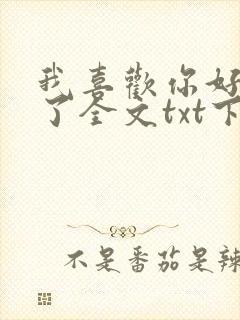 我喜歡你好
了全文txt下
不是番茄是辣